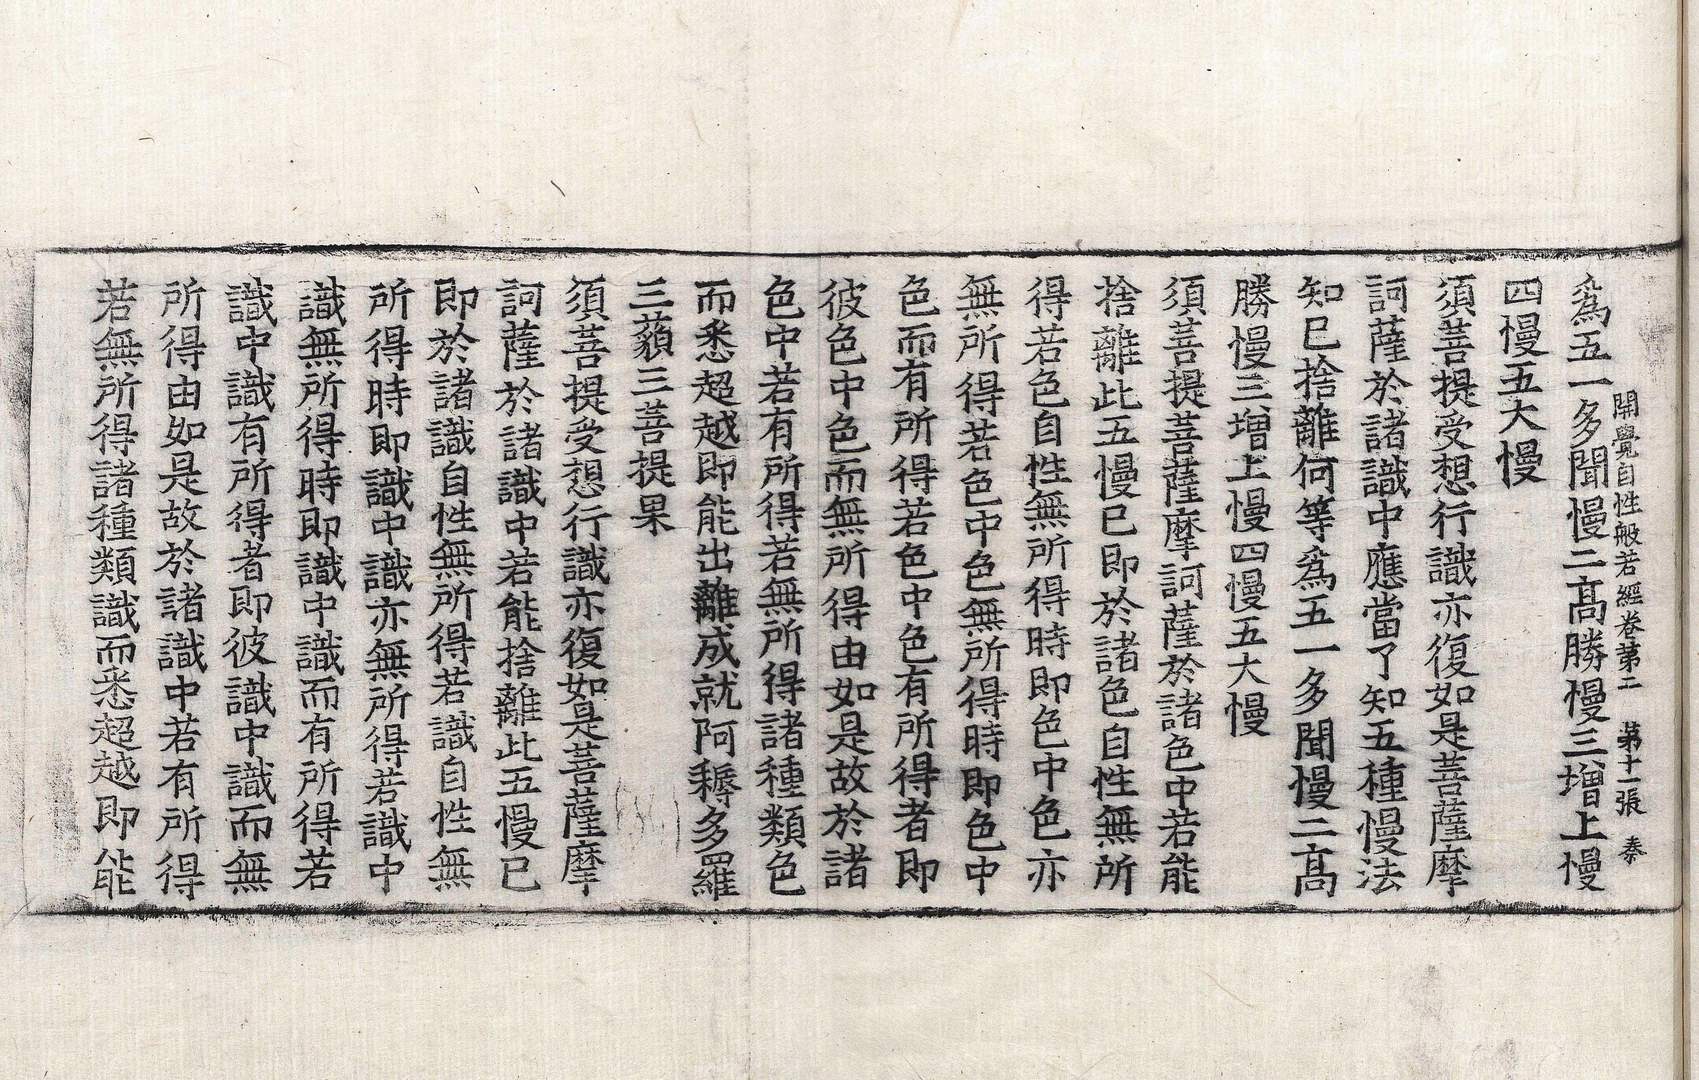 開覺自性般若經卷第二　第十一張　秦
爲五一多聞慢二髙勝慢三增上慢
四慢五大慢
須菩提受想行識亦復如是菩薩摩
訶薩於諸識中應當了知五種慢法
知已捨離何等爲五一多聞慢二髙
勝慢三增上慢四慢五大慢
須菩提菩薩摩訶薩於諸色中若能
捨離此五慢已即於諸色自性無所
得若色自性無所得時即色中色亦
無所得若色中色無所得時即色中
色而有所得若色中色有所得者即
彼色中色而無所得由如是故於諸
色中若有所得若無所得諸種類色
而悉超越即能出離成就阿耨多羅
三藐三菩提果
須菩提受想行識亦復如是菩薩摩
訶薩於諸識中若能捨離此五慢已
即於諸識自性無所得若識自性無
所得時即識中識亦無所得若識中
識無所得時即識中識而有所得若
識中識有所得者即彼識中識而無
所得由如是故於諸識中若有所得
若無所得諸種類識而悉超越即能